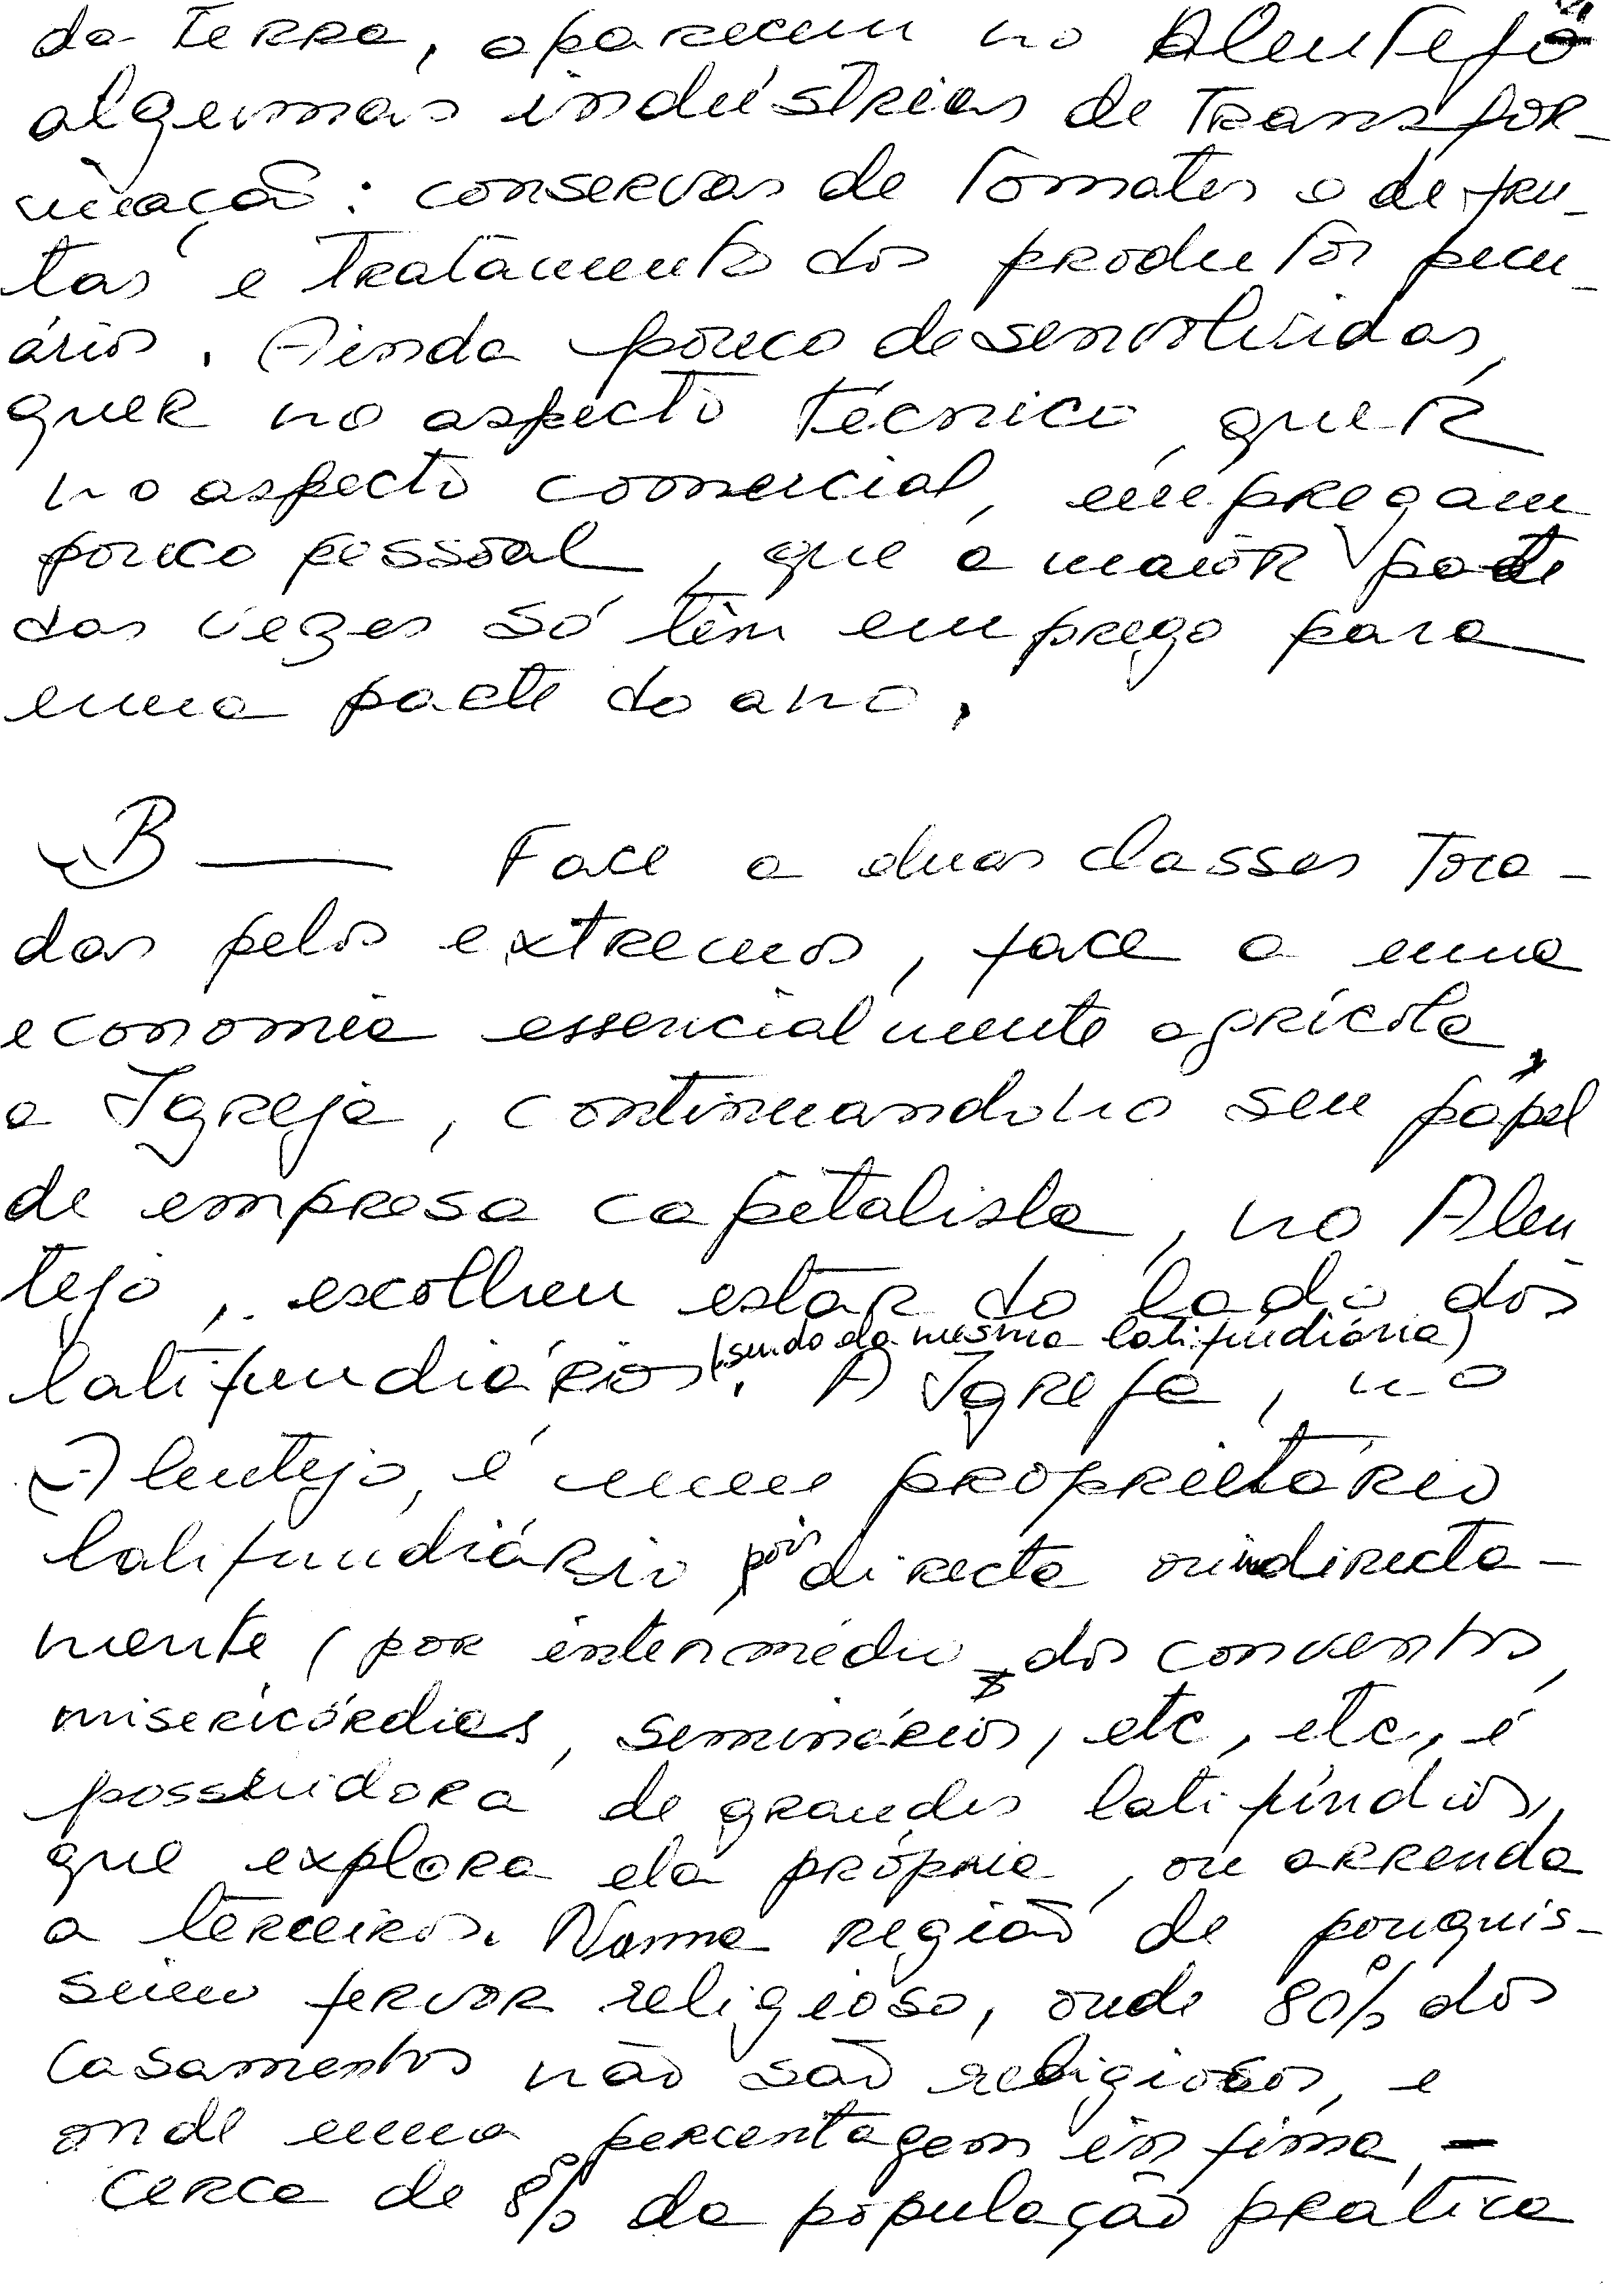 da terra, aparecem no Alentejo
algumas indústrias de transfor-
mação: conservas de tomates e de fru-
tas e tratamento dos produtos pecu-
ários. Ainda pouco desenvolvidas,
quer no aspecto técnico, quer
no aspecto comercial, empregam
pouco pessoal, que a maior parte
das vezes só têm emprego para
uma parte do ano.
B — Face a duas classes
das pelos extremos, face a uma
economia essencialmente agrícola,
a Igreja, continuando no seu papel
de empresa capitalista, no Alen
tejo, escolheu estar do lado dos
latifundiários (sendo da mesma latifundiária). A Igreja, no
Alentejo, é um proprietário
latifundiário pois directa ou indirecta-
mente (por intermédio dos conventos,
misericórdias, seminários, etc, etc, é
possuidora de grandes latifúndios,
que explora ela própria, ou arrenda
a terceiros. Numa região de pouquis-
simo fervor religioso, onde 80% dos
casamentos não são religiosos, e
onde uma percentagem infima, -
cerca de 8% da população pratica